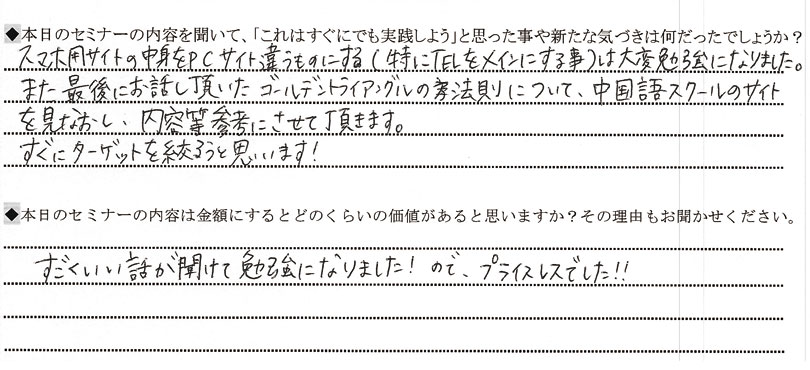 ◆本日のセミナーの内容を聞いて、「これはすぐにでも実践しよう」と思った事や新たな気づきは何だったでしょうか?
スマホ用サイトの中身をPCサイト違うものにする(特にTELをメインにする事)は大変勉強になりました。
また最後にお話し頂いたゴールデントライアングルの法則について、中国語スクールのサイト
を見なおし、内容等参考にさせて頂きます。
すぐにターゲットを絞ろうと思います!
◆本日のセミナーの内容は金額にするとどのくらいの価値があると思いますか?その理由もお聞かせください。
すごくいい話が聞けて勉強になりました!ので、プライスレスでした!!